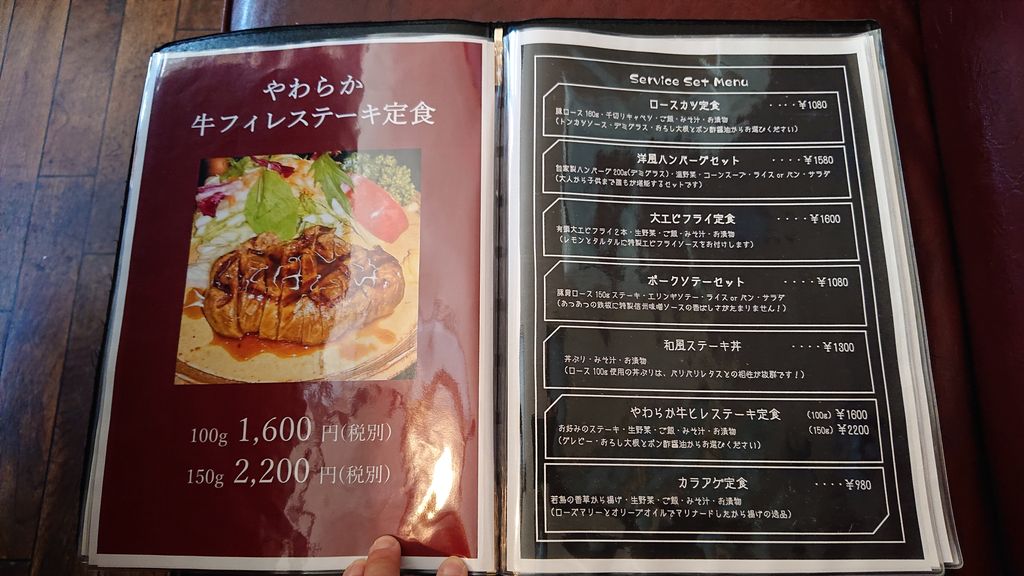 やわらか
牛フィレステーキ定食
100g 1,600 円(税別)
150g 2,200 円(税別)
Service Set Menu
ロースカツ定食 ････¥1080
豚ロース 160g・千切りキャベツ・ご飯・みそ汁・お漬物
(トンカツソース・デミグラス・おろし大根とポン酢醤油からお選びください)
洋風ハンバーグセット ････¥1580
自家製ハンバーグ 200g(デミグラス)・温野菜・コーンスープ・ライス or パン・サラダ
(大人から子供まで誰もが堪能するセットです)
大エビフライ定食 ････¥1600
有頭大エビフライ 2本・生野菜・ご飯・みそ汁・お漬物
(レモンとタルタルに特製エビフライソースをお付けします)
ポークソテーセット ････¥1080
豚肩ロース 150g ステーキ・エリンギソテー・ライス or パン・サラダ
(あつあつの鉄板に特製信州味噌ソースの香ばしさがたまりません!)
和風ステーキ丼 ････¥1300
丼ぶり・みそ汁・お漬物
(ロース 100g 使用の丼ぶりは、パリパリレタスとの相性が抜群です!)
やわらか牛ヒレステーキ定食 (100g) ¥1600
(150g) ¥2200
お好みのステーキ・生野菜・ご飯・みそ汁・お漬物
(グレービー・おろし大根とポン酢醤油からお選びください)
カラアゲ定食 ････¥980
若鳥の香草から揚げ・生野菜・ご飯・みそ汁・お漬物
(ローズマリーとオリーブオイルでマリナードしたから揚げの逸品)